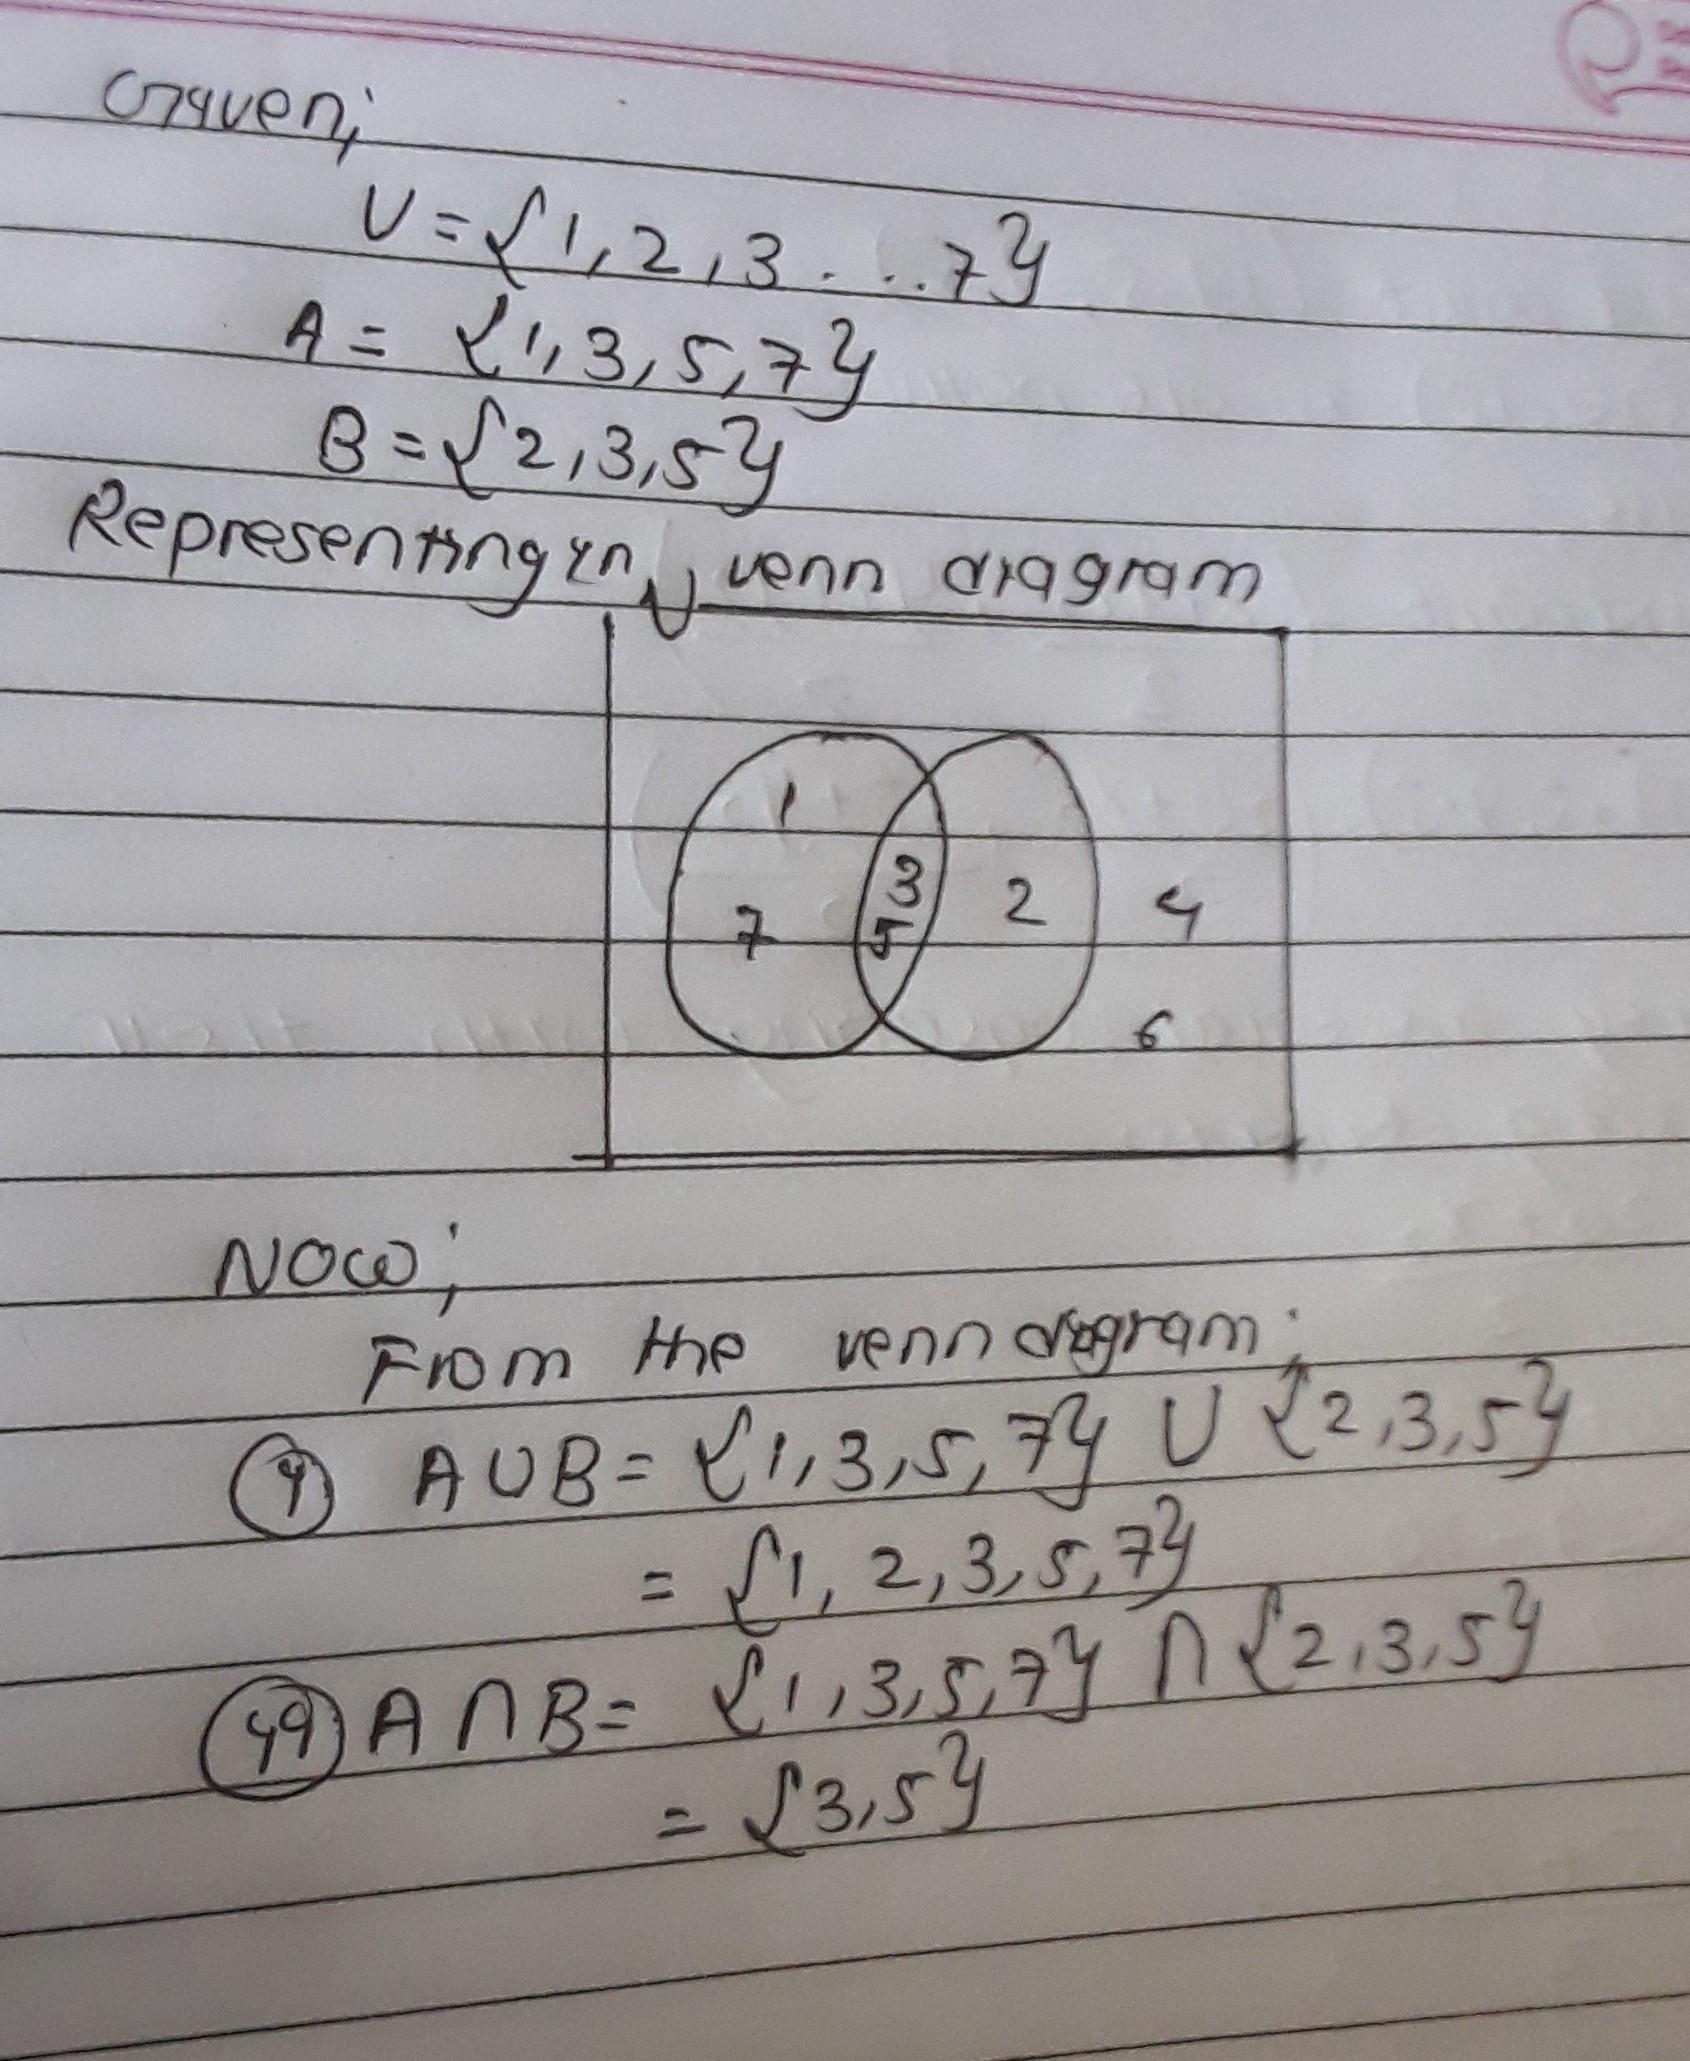 Given;
U = {1, 2, 3 . . . 7}
A = {1, 3, 5, 7}
B = {2, 3, 5}
Representing in venn diagram
U
1
3
7
5
2
4
6
Now;
From the venn diagram;
(i) A U B = {1, 3, 5, 7} U {2, 3, 5}
= {1, 2, 3, 5, 7}
(ii) A ∩ B = {1, 3, 5, 7} ∩ {2, 3, 5}
= {3, 5}